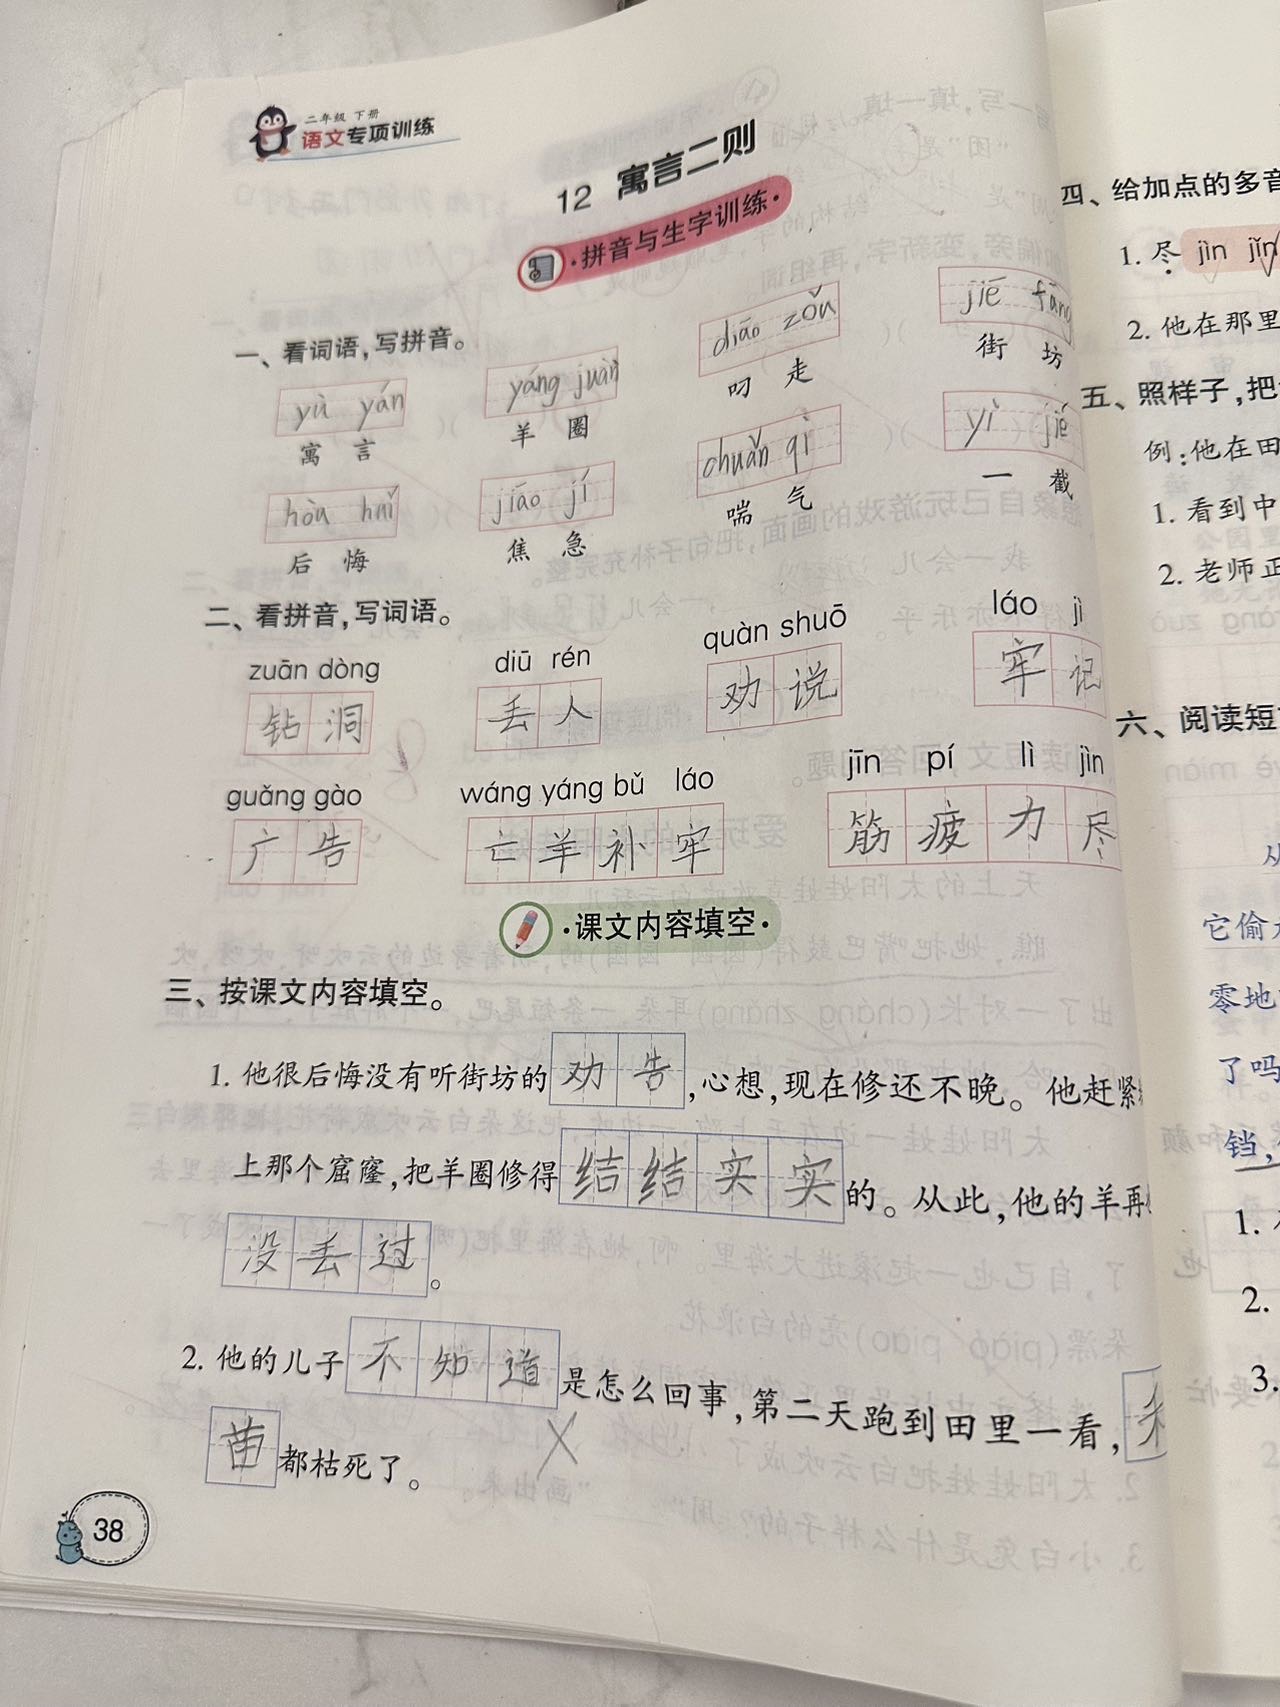 二年级 下册
语文专项训练
12 寓言二则
·拼音与生字训练·
一、看词语，写拼音。
yù yán
yáng juàn
diāo zǒu
jiē fāng
寓 言
羊 圈
叼 走
街 坊
hòu huǐ
jiāo jí
chuǎn qì
yì jié
后 悔
焦 急
喘 气
一 截
二、看拼音，写词语。
zuān dòng
diū rén
quàn shuō
láo jì
钻洞
丢人
劝说
牢记
guǎng gào
wáng yáng bǔ láo
jīn pí lì jìn
广告
亡羊补牢
筋疲力尽
·课文内容填空·
三、按课文内容填空。
1. 他很后悔没有听街坊的劝告，心想，现在修还不晚。他赶紧
上那个窟窿，把羊圈修得结结实实的。从此，他的羊再
没丢过。
2. 他的儿子不知道是怎么回事，第二天跑到田里一看，
苗都枯死了。
38
四、给加点的多音
1. 尽 jìn jǐn
2. 他在那里
五、照样子，把
例：他在田
1. 看到中
2. 老师正
六、阅读短
从
它偷
零地
了吗
铛，
1.
2.
3.